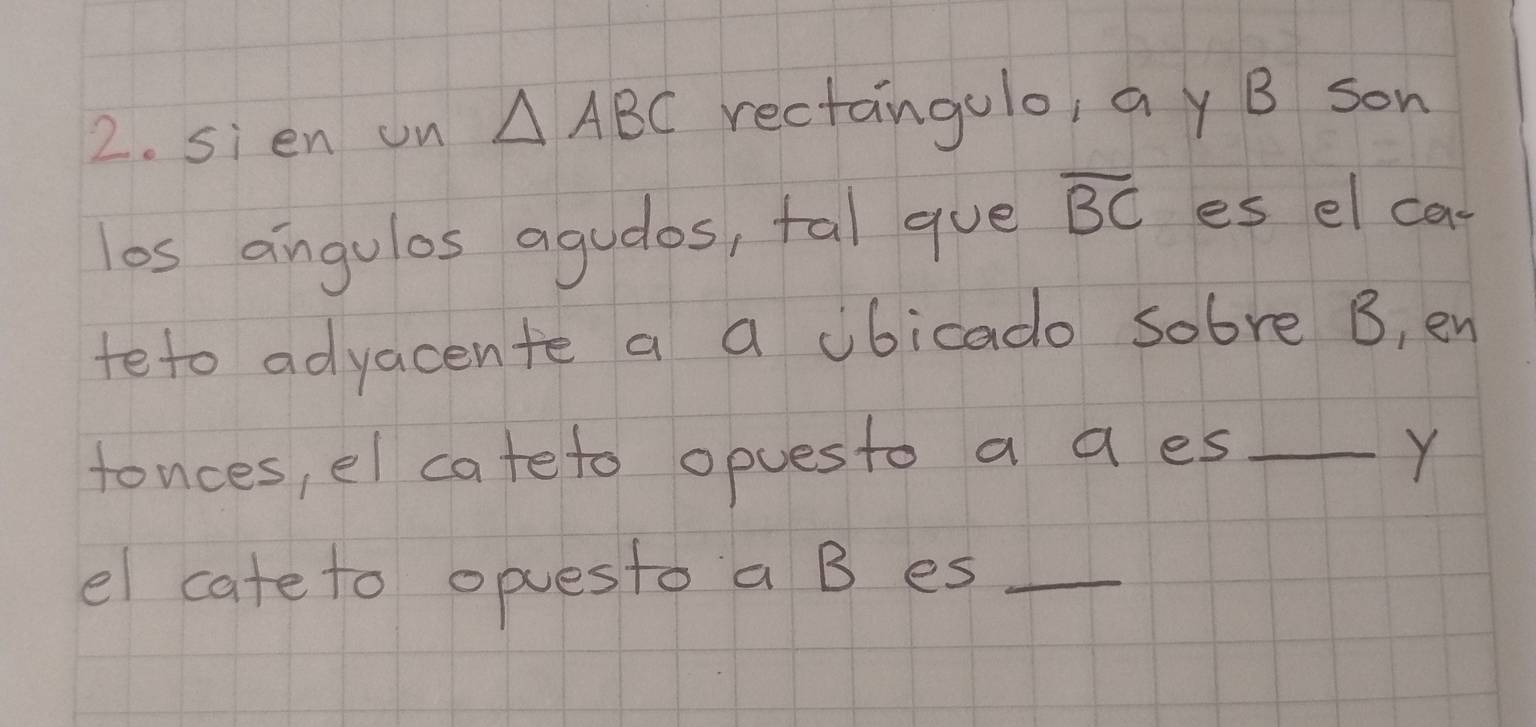 2. si en un △ ABC rectángulo, a y B son
los ángulos agudos, tal que B̅C̅ es el ca-
teto adyacente a a ubicado sobre B, en
tonces, el cateto opuesto a a es ___ y
el cateto opuesto a B es ___